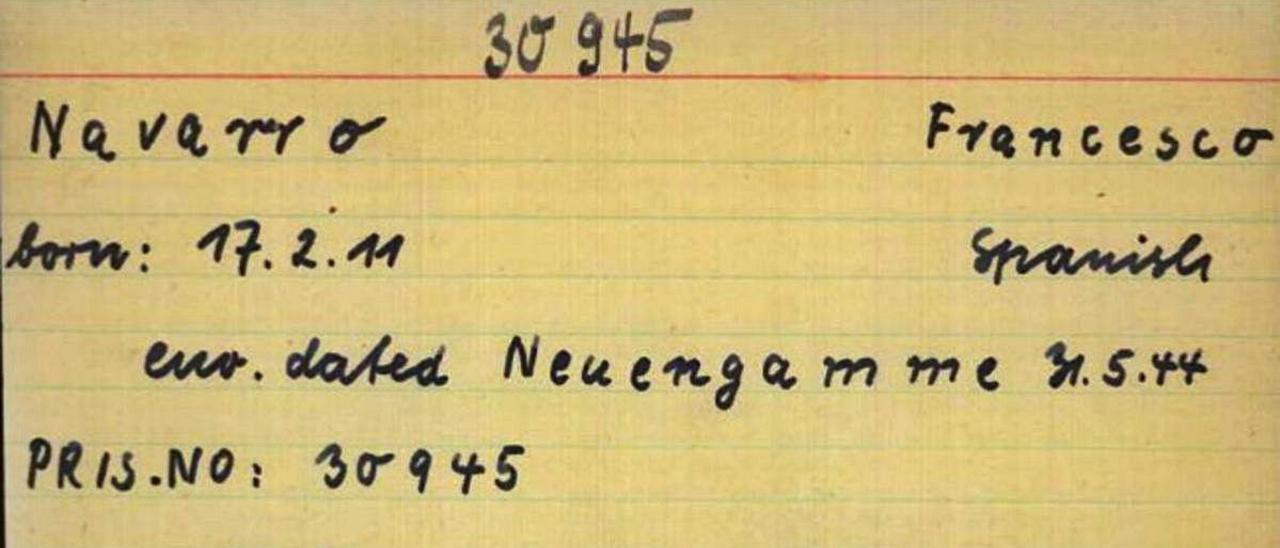 30 945
Navarro Francesco
born: 17.2.11 Spanish
env. dated Neuengamme 31.5.44
PRIS.NO: 30945